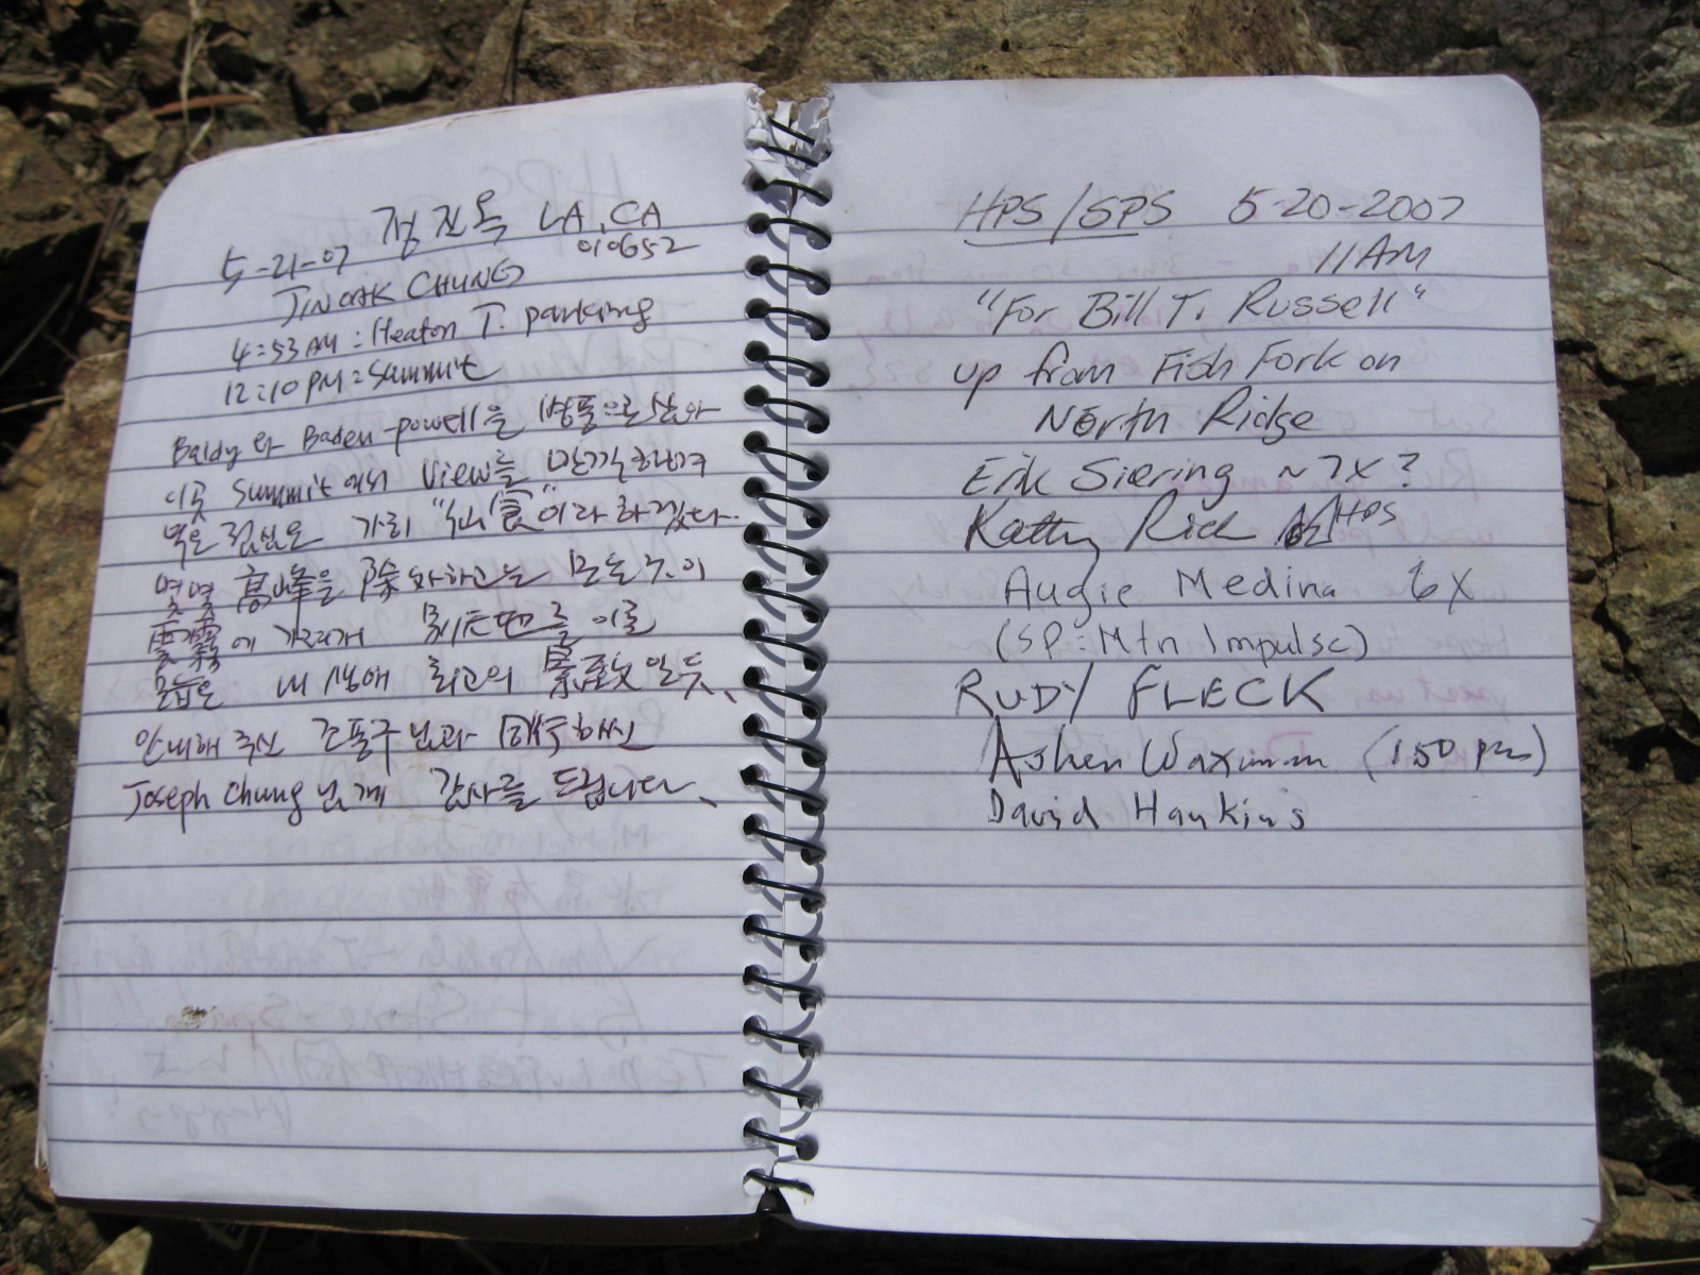 정진옥 LA, CA
5-21-07 010652
JINOAK CHUNG
4:53 AM: Heaton T. parking
12:10 PM: Summit
Baldy와 Baden-powell을 병풍으로 삼아
이곳 Summit에서 View를 만끽하며
먹은 점심은 가히 "仙食"이라 하겠다.
몇몇 高峰을 除外하고는 모든 곳이
雲霧에 가리어져 別天地를 이룬
오늘은 내 생애 최고의 景致일 듯.
안내해 주신 조풍구님과 동행하신
Joseph Chung님께 감사를 드립니다.
HPS/SPS 5-20-2007
11AM
"For Bill T. Russell"
up from Fish Fork on
North Ridge
Erik Siering ~7x?
Kathy Rich HPS
Augie Medina 6X
(SP: Mtn Impulse)
RUDY FLECK
Asher Waxman (150 pm)
David Hankins